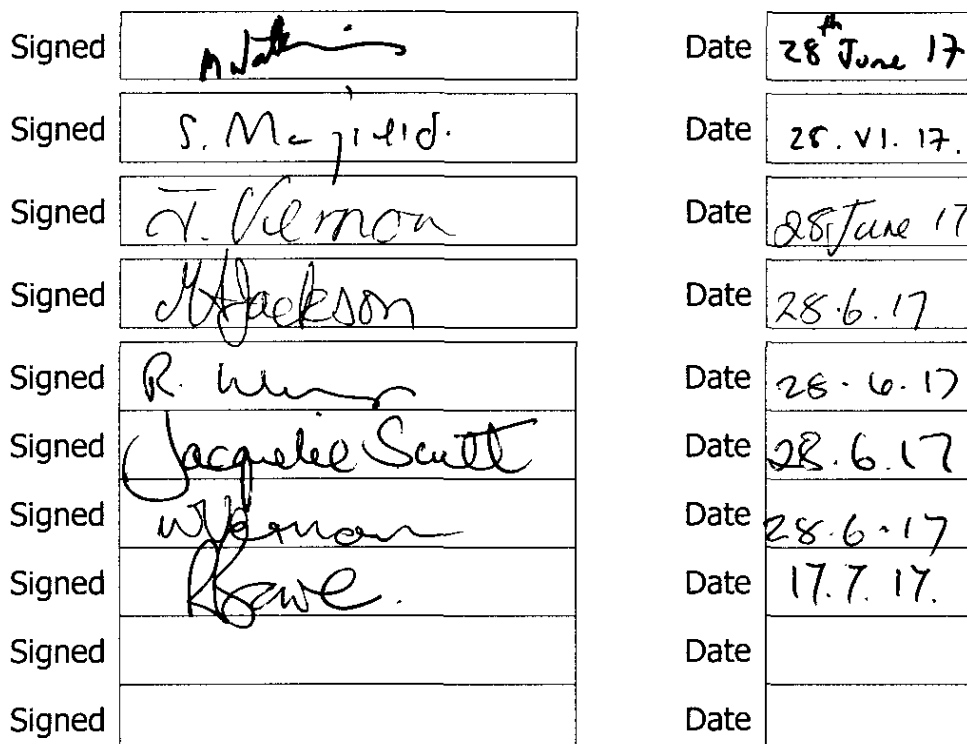 Signed M Date 28th June 17
Signed S. Date 28. VI. 17.
Signed J. Vernon Date 28 June 17
Signed MAJackson Date 28.6.17
Signed R. Date 28.6.17
Signed Jacqueline Scott Date 28.6.17
Signed WVernon Date 28.6.17
Signed Date 17.7.17.
Signed Date
Signed Date